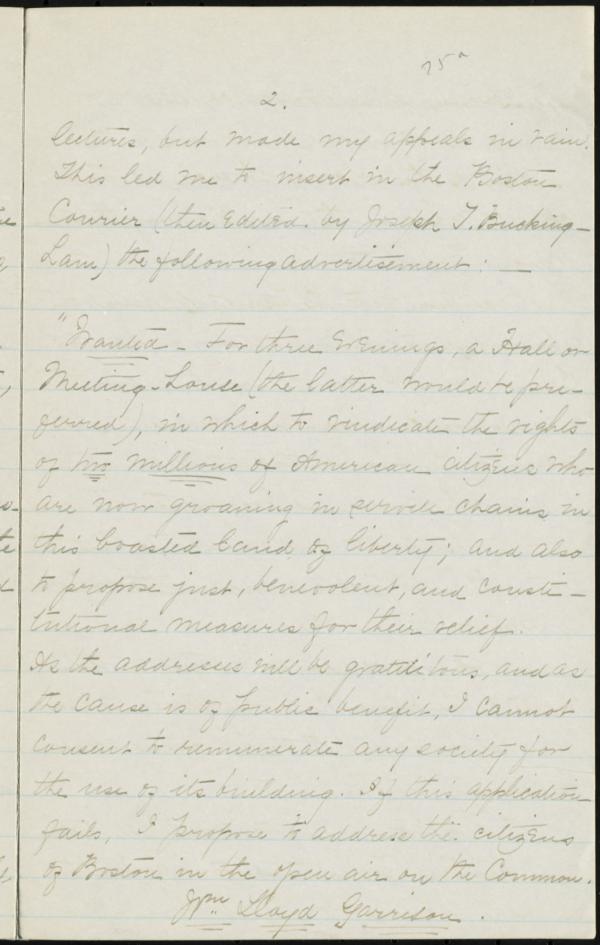 75a
2.
lectures, but made my appeals in vain.
This led me to insert in the Boston
Courier (then edited by Joseph T. Bucking-
ham) the following advertisement: —
"Wanted – For three Evenings, a Hall or
Meeting-house (the latter would be pre-
ferred), in which to vindicate the rights
of two millions of American citizens who
are now groaning in servile chains in
this boasted land of liberty; and also
to propose just, benevolent, and consti-
tutional measures for their relief.
As the addresses will be gratuitous, and as
the cause is of public benefit, I cannot
consent to remunerate any society for
the use of its building. If this application
fails, I propose to address the citizens
of Boston in the open air on the Common.
Wm. Lloyd Garrison.